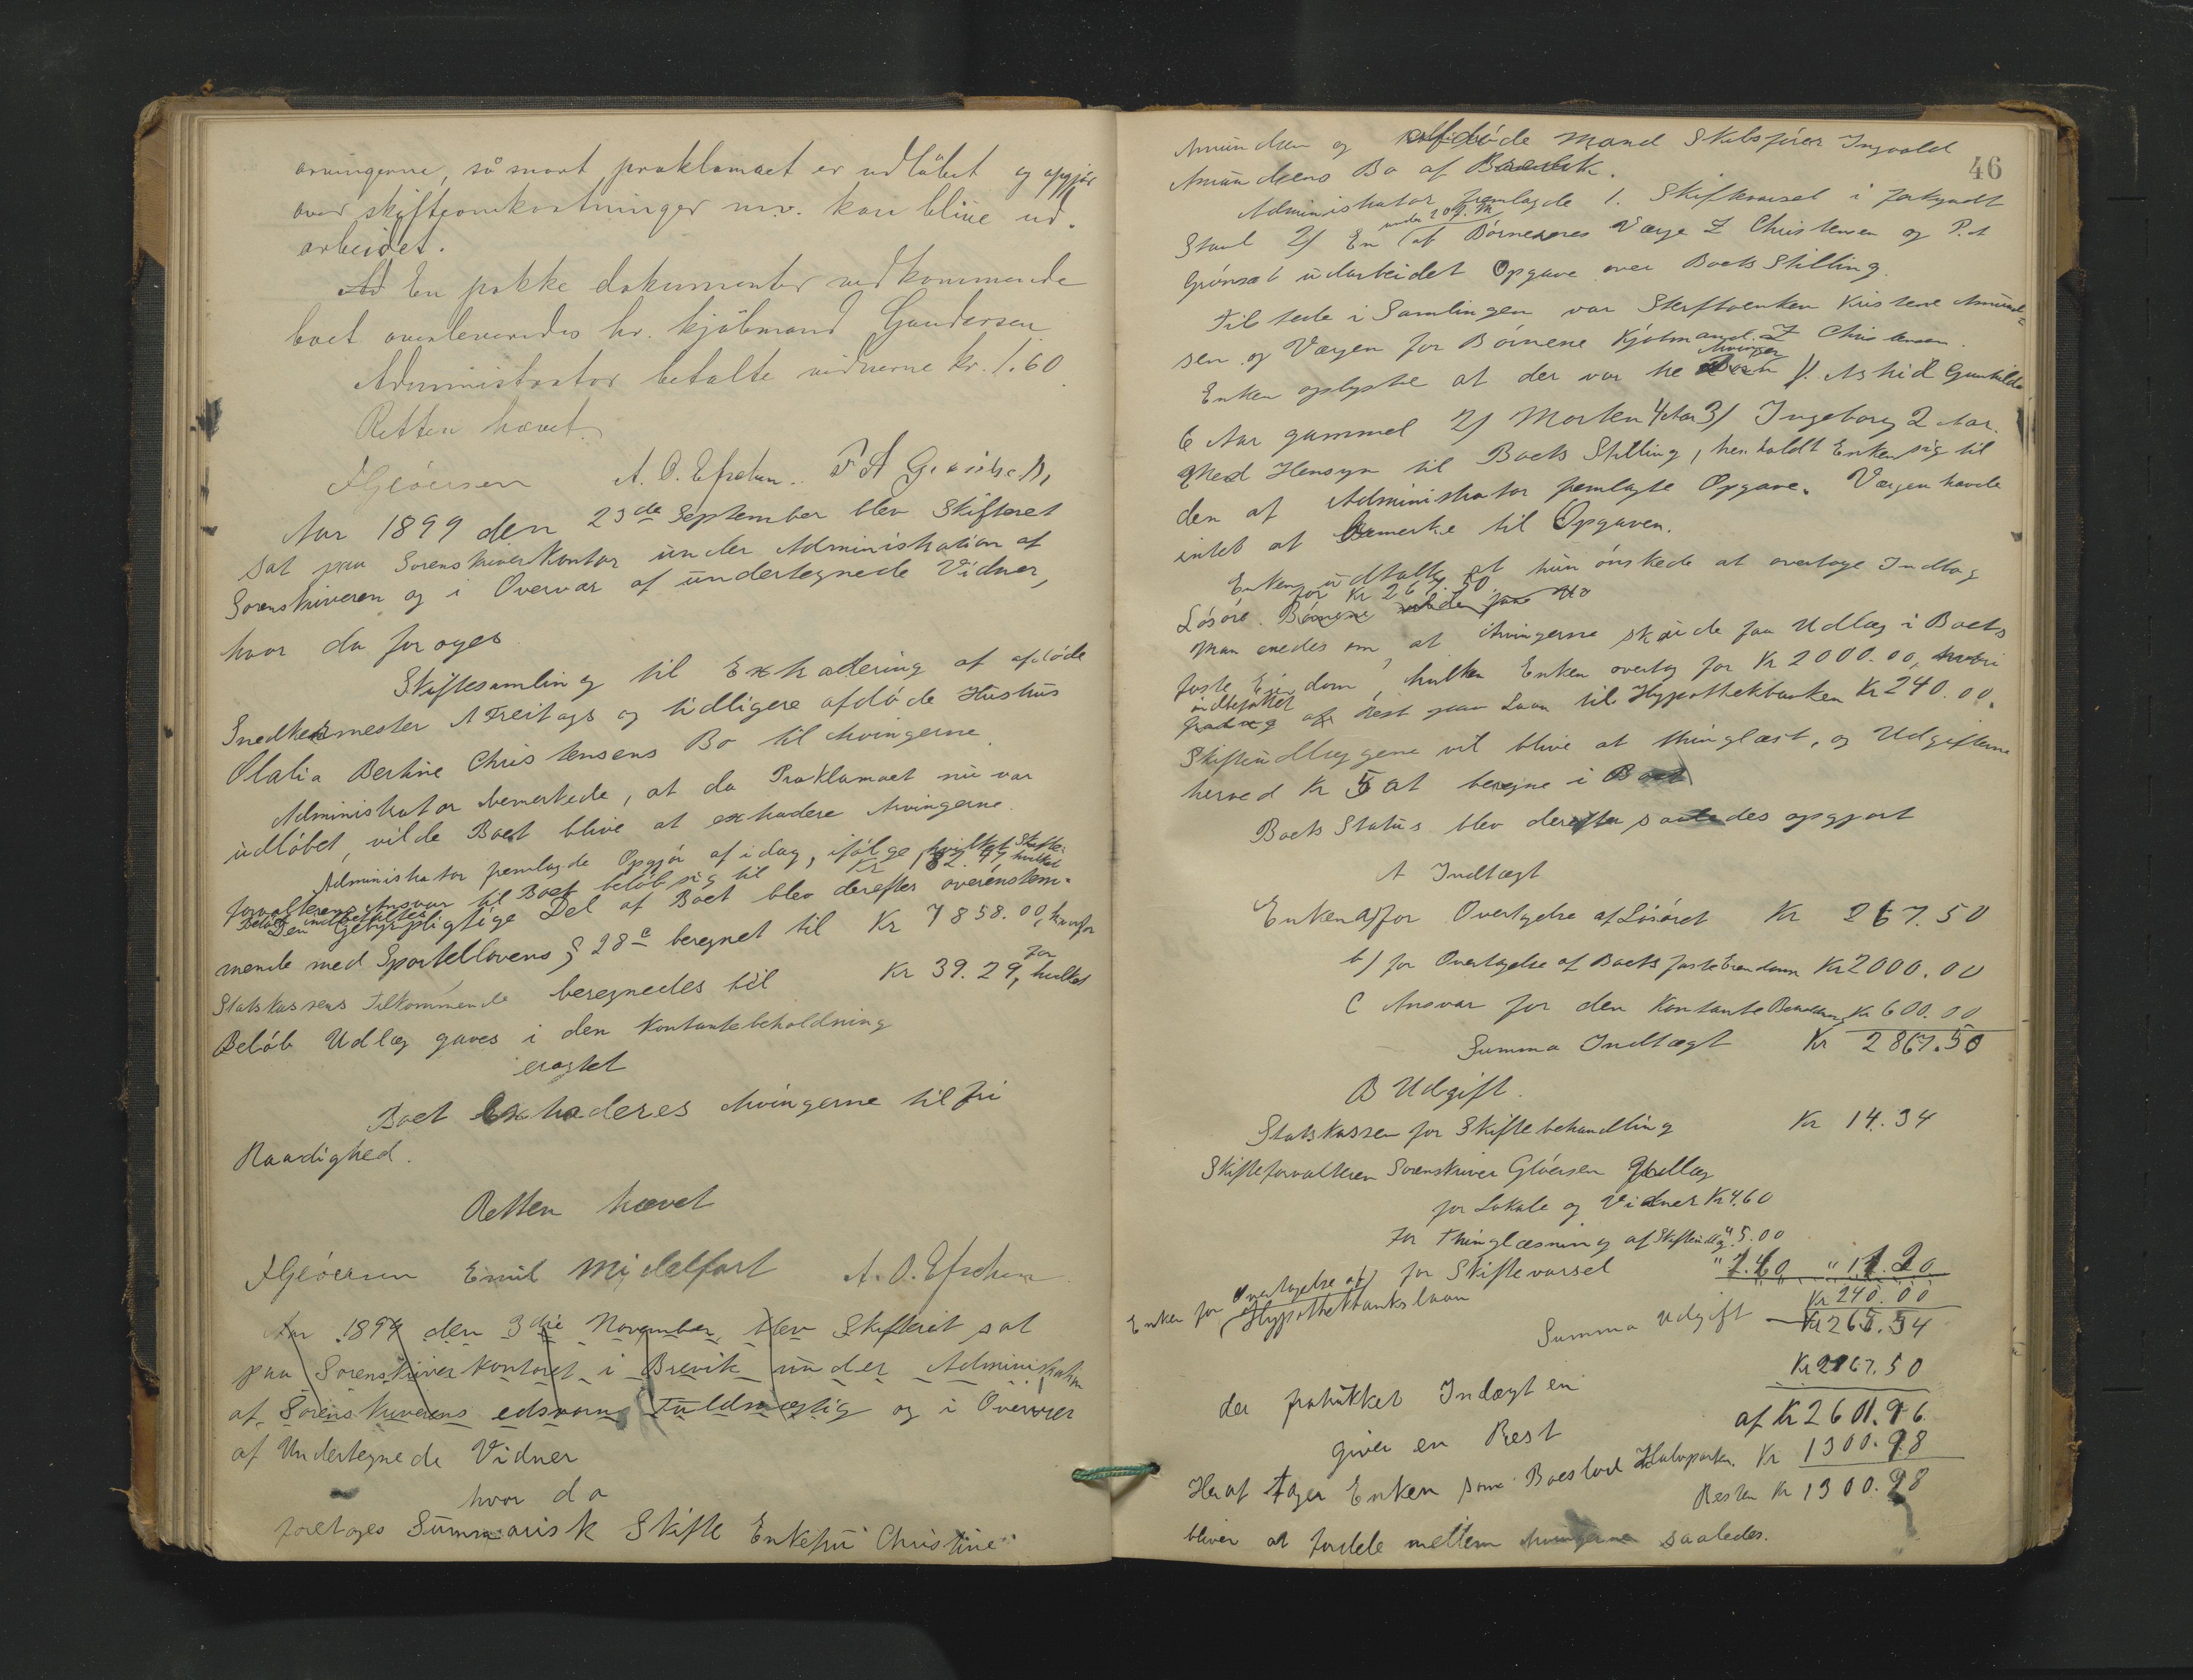 arvingerne, så snart proklamaet er udløbet og opgjør
over skifteomkostninger m.v. kan blive ud-
arbeidet.
En pakke dokumenter vedkommende
boet overleveredes hr. kjøbmand Gundersen
Administrator betalte vidnerne kr. 1.60
Retten hævet.
A. O.
Aar 1899 den 23de September blev Skifteret
sat paa Sorenskriverkontor under Administration af
Sorenskriveren og i Overvær af undertegnede Vidner,
hvor da foretoges
Skiftesamling til Extradering af afdøde
Snedkermester A Freitags og tidligere afdøde Hustrus
Olalia Bertine Christensens Bo til Arvingerne.
Administrator bemerkede, at da Proklamaet nu var
udløbet, vilde Boet blive at extradere Arvingerne.
Administrator fremlagde Opgjør af idag, ifølge hvilket Skifte-
forvalterens Ansvar til Boet beløb sig til Kr 82.97 hvilket
Beløb indbetaltes
Den Gebyrpligtige Del af Boet blev derefter overenstem-
mende med Sportellovens § 28 c beregnet til Kr 7858.00, hvorfor
Statskassens Tilkommende beregnedes til Kr 39.29, for hvilket
Beløb Udlæg gaves i den Kontantebeholdning
eragtet
Boet Extraderes Arvingerne til fri
Raadighed.
Retten hævet
Emil Midelfart A. O.
Aar 1899 den 3die November blev Skifteret sat
paa Sorenskriverkontoret i Brevik under Administration
af Sorenskriverens edsvorne Fuldmægtig og i Overvær
af Undertegnede Vidner
hvor da
foretoges Summarisk Skifte Enkefru Christine
46
Amundsen og afdøde Mand Skibsfører Ingvald
Amundsens Bo af Brevik.
Administrator fremlagde 1. Skiftevarsel i forkyndt
Stand 2/ En under 20 f. M. af Børnenes Værge Z Christensen og P. A
Grønsæt udarbeidet Opgave over Boets Stilling.
Tilstede i Samlingen var Sterfboenken Kristene Amund=
sen og Værgen for Børnene Kjøbmand Z Christensen.
Enken oplyste at der var tre Arvinger 1/. Astrid Gunhilda
6 Aar gammel 2/ Morten 4 Aar 3/ Ingeborg 2 Aar.
Med Hensyn til Boets Stilling, henholdt Enken sig til
den af Administrator fremlagte Opgave. Værgen havde
intet at bemerke til Opgaven.
Enken udtalte at hun ønskede at overtage Indbo og
Løsøre for Kr 267.50.
Man enedes om, at Arvingerne skulde faa Udlæg i Boets
faste Eiendom, hvilken Enken overtog for Kr 2000.00, hvori
indbefattet
Rest paa Laan til Hypothekbanken Kr 240.00.
Skifteudlæggene vil blive at thinglæst, og Udgifterne
herved Kr 5 at beregne i Boet
Boets Status blev derefter saaledes opgjort
A Indtægt
Enken a) for Overtagelse af Løsøret Kr 267.50
b) for Overtagelse af Boets faste Eiendom Kr 2000.00
C Ansvar for den Kontante Beholdning Kr 600.00
Summa Indtægt Kr 2867.50
B Udgift.
Statskassen for Skiftebehandling Kr 14.34
Skifteforvalteren Sorenskriver Gløersen Udlæg
for Lokale og Vidner Kr 4.60
For Thinglæsning af Skifteudlæg " 5.00
for Skiftevarsel " 1.60 " 11.20
Enken for Overtagelse af Hypothekbankslaan Kr 240.00
Summa Udgift Kr 265.54
der fratrukket Indtægten Kr 2867.50
giver en Rest af Kr 2601.96
Heraf tager Enken som Boeslod Halvparten Kr 1300.98
Resten Kr 1300.98
bliver at fordele mellem Arvingerne saaledes.